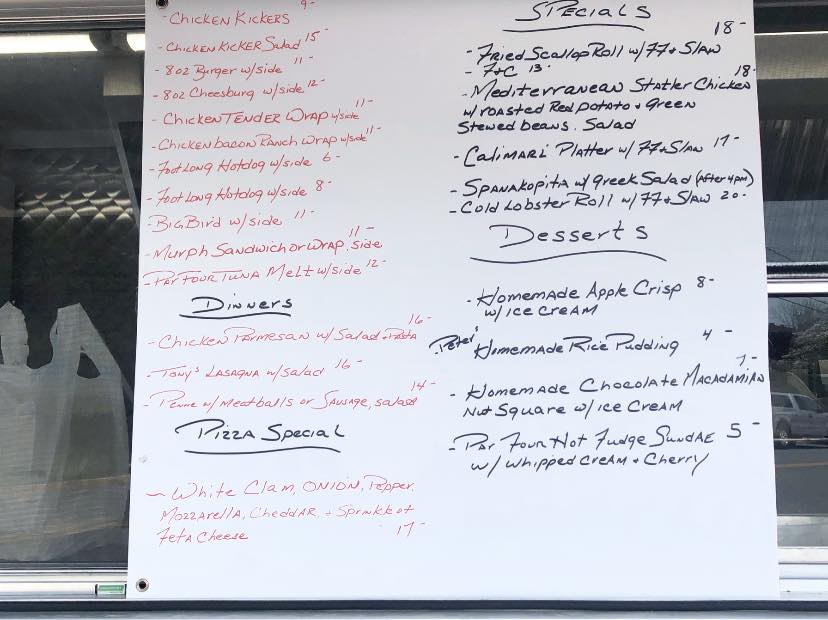 - Chicken Kickers 9-
- Chicken Kicker Salad 15
- 8oz Burger w/side 11-
- 8oz Cheesburg w/side 12-
- Chicken Tender Wrap w/side 11-
- Chicken bacon Ranch wrap w/side 11-
- Footlong Hotdog w/side 6-
- Footlong Hotdog w/side 8-
- Big Bird w/side 11-
- Murph Sandwich or Wrap, side 11-
- Par Four Tuna Melt w/side 12-
Dinners
- Chicken Parmesan w/ Salad + Pasta 16-
- Tony's Lasagna w/salad 16-
- Penne w/ Meatballs or Sausage, salad 14-
Pizza Special
- White Clam, Onion, Pepper,
Mozzarella, Cheddar, + Sprinkle of
Feta Cheese 17-
Specials
- Fried Scallop Roll w/ FF + Slaw 18-
- F+C 13-
- Mediterranean Statler Chicken 18-
w/ roasted Red potato + green
Stewed beans. Salad
- Calimari Platter w/ FF + Slaw 17-
- Spanakopita w/ Greek Salad (After 4pm)
- Cold Lobster Roll w/ FF + Slaw 20-
Desserts
- Homemade Apple Crisp 8-
w/ ice cream
- Peter's Homemade Rice Pudding 4-
- Homemade Chocolate Macadamian 7-
Nut Square w/ ice cream
- Par Four Hot Fudge Sundae 5-
w/ whipped cream + Cherry